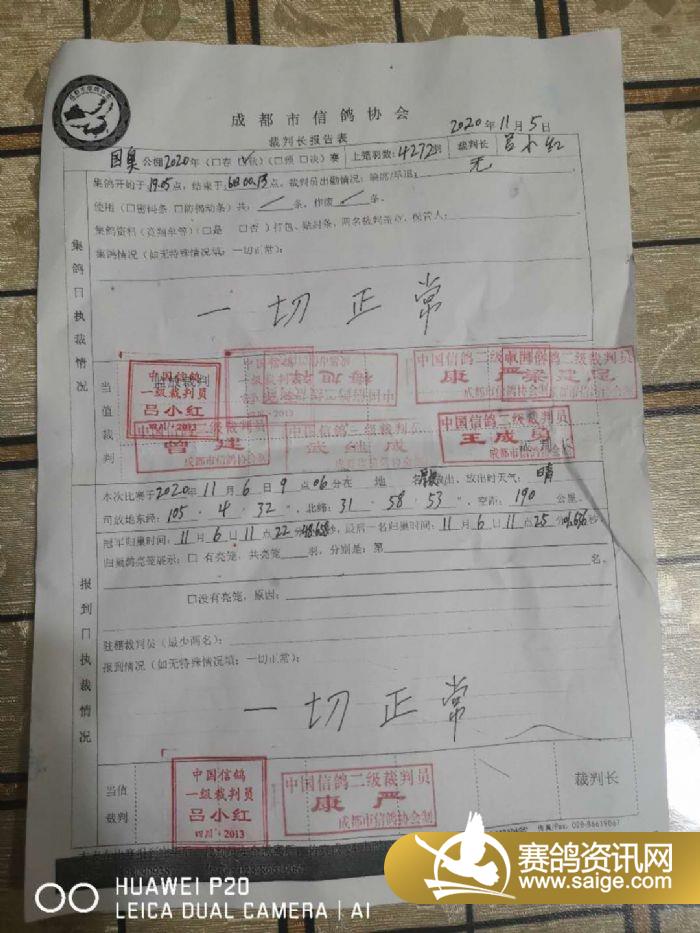 成都市信鸽协会
裁判长报告表
2020年11月5日
公棚2020年(口存 口预 口决)赛 上笼羽数:4272羽 裁判长 吕小红
集鸽开始于19.05点,结束于 点,裁判员出勤情况:缺席/早退: 无
使用(口密码条 口防偶动条)共: 条,作废 条。
集鸽资料(音频单等)(口是 口否)打包、贴封条,两名裁判签章,保管人:
集鸽情况(如无特殊情况填:一切正常):
一切正常
集鸽日执裁情况
当值裁判
中国信鸽
一级裁判员
吕小红
四川·2013
中国信鸽二级裁判员
康 严
成都市信鸽协会制
中国信鸽二级裁判员
曾 建
成都市信鸽协会制
中国信鸽三级裁判员
成都市信鸽协会制
中国信鸽二级裁判员
王成员
成都市信鸽协会制
本次比赛于2020年11月6日9点06分在 地 名 放出,放出时天气:晴
司放地东经:105·4·32″,北纬:31·58·53″,空距:190公里。
冠军归巢时间:11月6日11点22分 秒,最后一名归巢时间:11月6日11点25分 秒。
归巢鸽亮笼展示:口 有亮笼,共亮笼 羽,分别是:第
名。
口没有亮笼,原因:
驻棚裁判员(最少两名):
报到情况(如无特殊情况填:一切正常):
一切正常
报到日执裁情况
当值裁判
中国信鸽
一级裁判员
吕小红
四川·2013
中国信鸽二级裁判员
康 严
成都市信鸽协会制
裁判长
传真/Fax: 028-86619067
HUAWEI P20
LEICA DUAL CAMERA | AI
赛鸽资讯网
www.saige.com